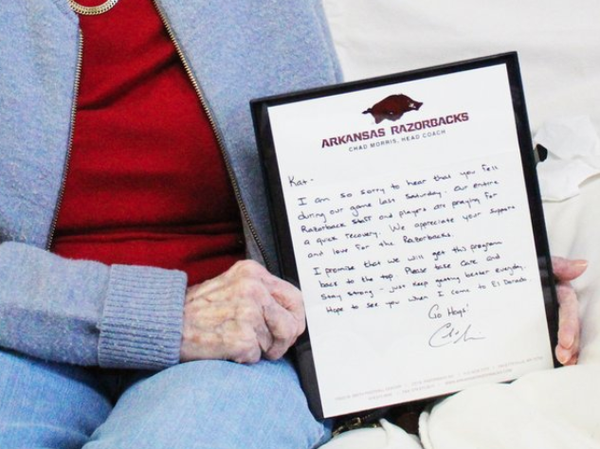 ARKANSAS RAZORBACKS
CHAD MORRIS, HEAD COACH
Kat-
I am so sorry to hear that you fell
during our game last Saturday. Our entire
Razorback staff and players are praying for
a quick recovery. We appreciate your support
and love for the Razorbacks.
I promise that we will get this program
back to the top. Please take care and
stay strong - just keep getting better everyday.
Hope to see you when I come to El Dorado.
Go Hogs!